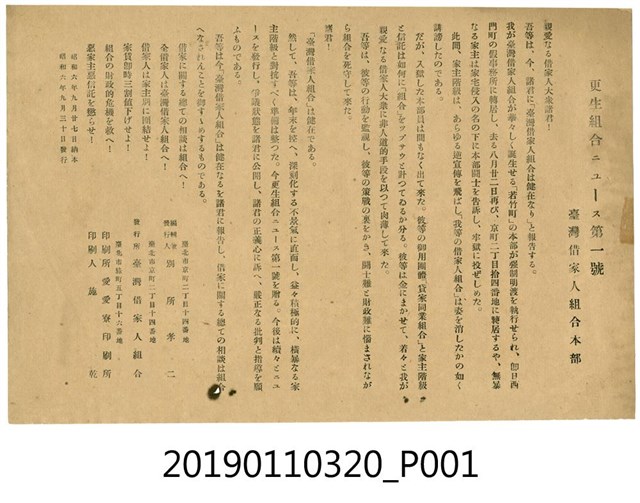 更生組合ニュース第一號
臺灣借家人組合本部
親愛なる借家人大衆諸君！
吾等は、今、諸君に「臺灣借家人組合は健在なり」と報告する。
我が臺灣借家人組合が華々しく誕生せる「若竹町」の本部が强制明渡を執行せられ、卽日西
門町の假事務所に轉居し、去る八月廿二日再び、京町二丁目拾四番地に轉居するや、無暴
なる家主は家宅侵入の名の下に本部鬪士を告訴し、牢獄に投ぜしめた。
此間、家主階級は、あらゆる逆宣傳を飛ばし、我等の借家人組合は姿を消したかの如く
誹謗したのである。
だが、入獄した本部員は間もなく出て來た。彼等の御用團體「貸家同業組合」と家主階級
と信託は如何に「組合」をツブサウと計つてゐるか分る。彼等は金にまかせて、着々と我が
親愛なる借家人大衆に非人道的手段を以つて肉薄して來た。
吾等は、彼等の行動を監視し、彼等の策戰の裏をかき、鬪士難と財政難に惱まされなが
ら組合を死守して來た。
諸君！
「臺灣借家人組合」は健在である。
然して、吾等は、年末を控へ、深刻化する不景氣に直面し、益々積極的に、橫暴なる家
主階級と對抗すべく準備は整つた。今更生組合ニュース第一號を贈る。今後は續々とニュ
ースを發行し、爭議狀態を諸君に公開し、諸君の正義心に訴へ、嚴正なる批判と指導を願
ふものである。
吾等は今、臺灣借家人組合は健在なるを諸君に報告し、借家に關する總ての相談は組合
へなされんことを御すゝめするものである。
借家に關する總ての相談は組合へ！
全借家人は臺灣借家人組合へ！
借家人は家主別に團結せよ！
家賃卽時三割値下げせよ！
組合の財政的危機を救へ！
惡家主惡信託を懲らせ！
昭和六年九月廿七日納本
昭和六年九月三十日發行
臺北市京町二丁目十四番地
編輯兼發行人 別所孝二
臺北市京町二丁目十四番地
發行所 臺灣借家人組合
臺北市綠町五丁目十六番地
印刷所 愛愛寮印刷所
印刷人 施乾
20190110320_P001